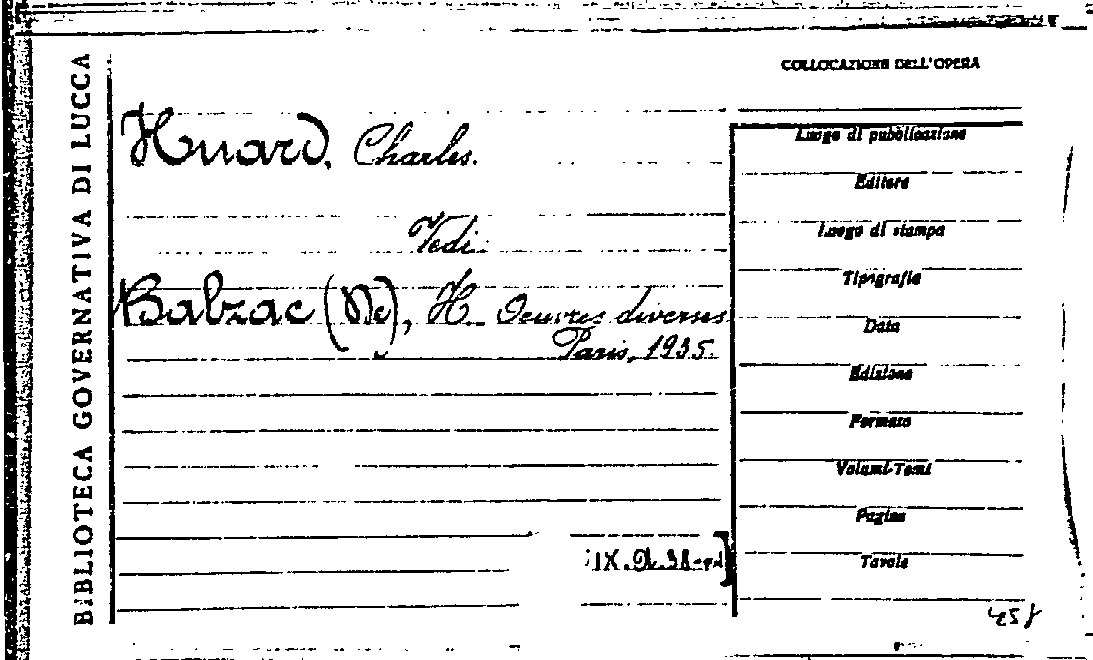 BIBLIOTECA GOVERNATIVA DI LUCCA
Huard, Charles.
Vedi
Balzac (De), H. Oeuvres diverses
Paris, 1935.
COLLOCAZIONE DELL'OPERA
Luogo di pubblicazione
Editore
Luogo di stampa
Tipografia
Data
Edizione
Formato
Volumi-Tomi
Pagine
Tavole